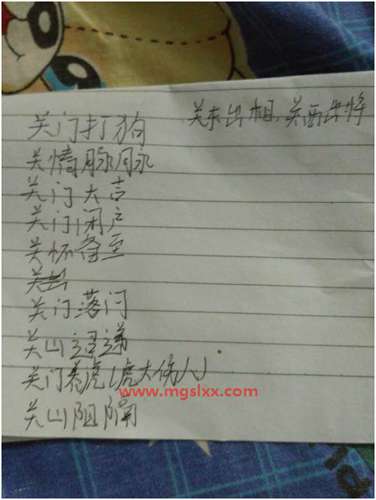 关门打狗
关东出相,关西出将
关情脉脉
关门大吉
关门闭户
关怀备至
关门落闩
关山迢递
关门养虎(虎大伤人)
www.mgslxx.com
关山阻隔